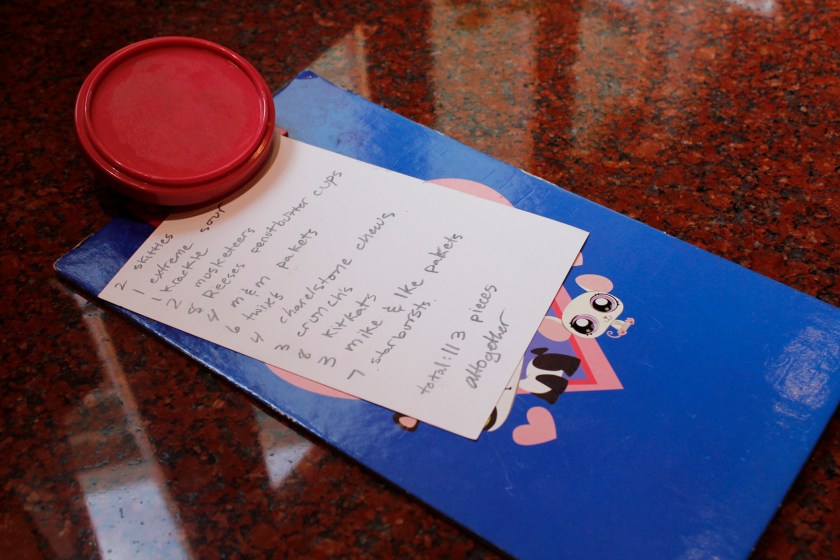 2 skittles
1 extreme sour
1 krackle
2 musketeers
8 Reeses penotbutter cups
4 m&m pakets
6 twixs
4 charelstone chews
3 crunchs
8 kitkats
3 mike & Ike pakets
7 starbursts
total: 113 pieces
altogether